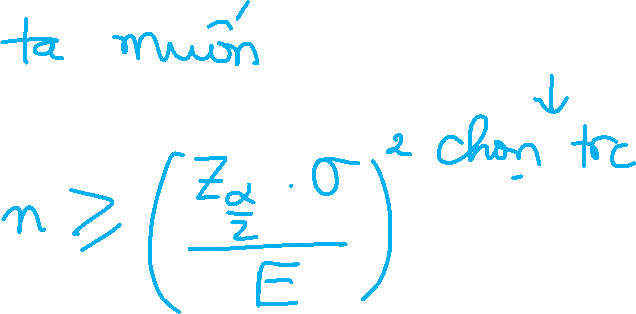 ta muốn
↓
n ≥ (Z_{α/2} · σ / E)² chọn trc